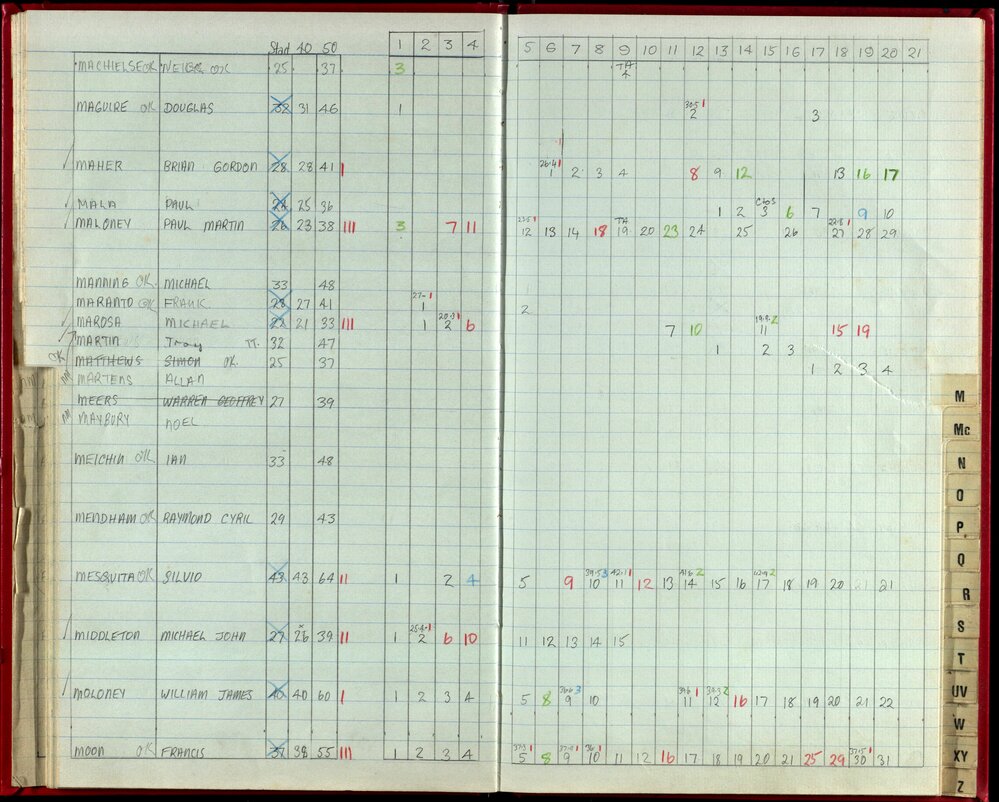 Start 40 50 1 2 3 4 5 6 7 8 9 10 11 12 13 14 15 16 17 18 19 20 21
MACHIELSE OK OK 25 37 3 TA 4
MAGUIRE OK DOUGLAS 32 31 46 1 30.5 1 2 3
MAHER BRIAN GORDON 28 28 41 I 26.4 1 1 2 3 4 8 9 12 13 16 17
MALA PAUL 24 25 36 1 2 3 6 7 9 10
MALONEY PAUL MARTIN 26 23 38 III 3 7 11 23.5 1 12 13 14 18 TA 19 20 23 24 25 26 22.8 1 27 28 29
MANNING OK MICHAEL 33 48
MARANTO OK FRANK 28 27 41 27- 1 1 2
MAROSA MICHAEL 22 21 33 III 1 20.3 1 2 6 7 10 19.9 2 11 15 19
MARTIN Tray TT. 32 47 1 2 3
OK MATTHEWS SIMON OK 25 37 1 2 3 4
MARTENS ALLAN
MEERS WARREN GEOFFREY 27 39
MAYBURY NOEL
MEICHIN OK IAN 33 48
MENDHAM OK RAYMOND CYRIL 29 43
MESQUITA OK SILVIO 43 43 64 II 1 2 4 5 9 39.5 3 10 42.1 1 11 12 13 41.6 2 14 15 16 2 17 18 19 20 21 21
MIDDLETON MICHAEL JOHN 27 26 39 II 1 25.4 1 2 6 10 11 12 13 14 15
MOLONEY WILLIAM JAMES 40 40 60 I 1 2 3 4 5 8 3 9 10 39.6 1 11 38.3 2 12 16 17 18 19 20 21 22
MOON OK FRANCIS 37 38 55 III 1 2 3 4 37.3 1 5 8 1 9 36 1 10 11 12 16 17 18 19 20 21 25 29 37.5 1 30 31
M
Mc
N
O
P
Q
R
S
T
UV
W
XY
Z